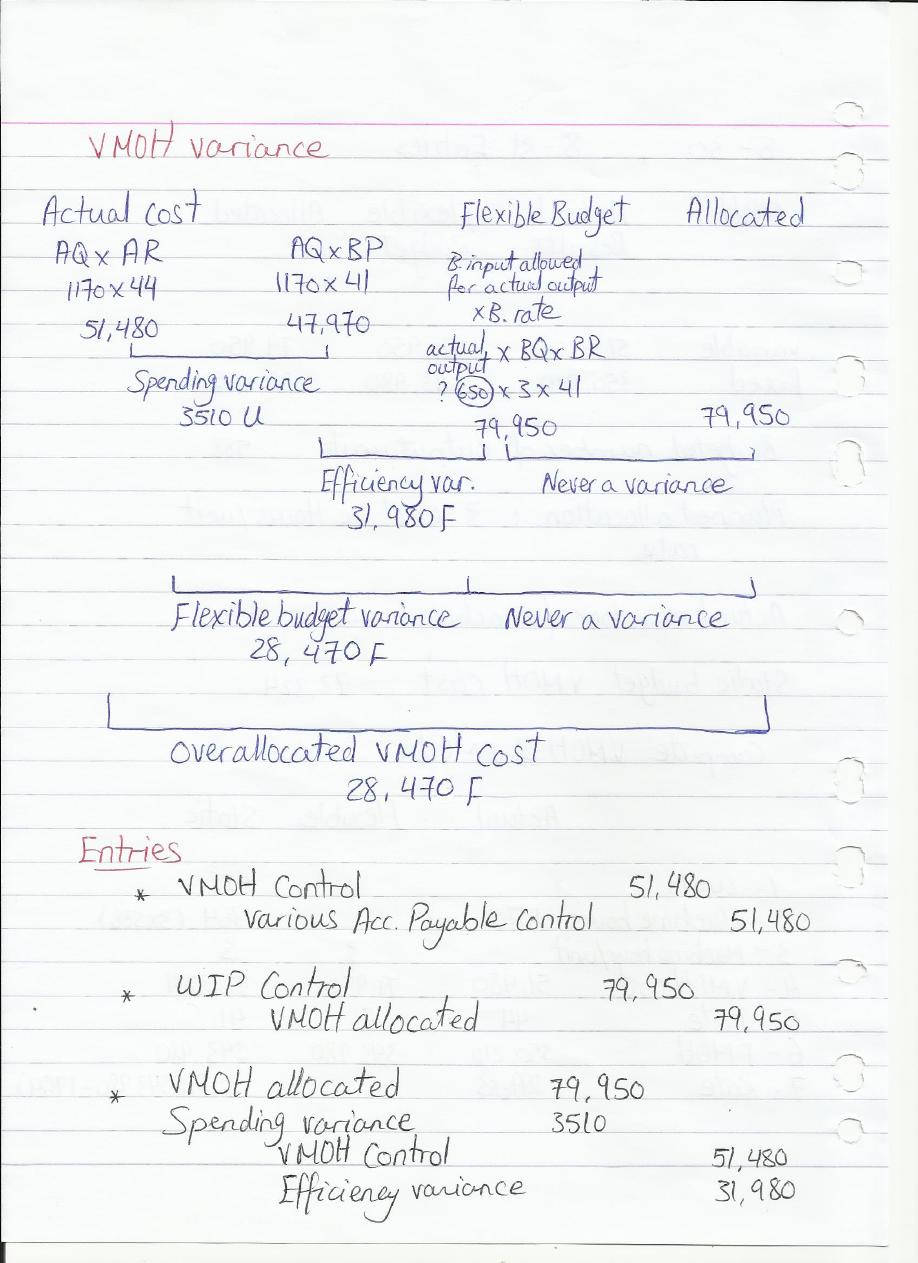 VMOH variance
Actual cost Flexible Budget Allocated
AQ x AR AQ x BP B. input allowed
1170 x 44 1170 x 41 for actual output
51,480 47,970 x B. rate
actual output x BQ x BR
Spending variance ? 650 x 3 x 41
3510 U 79,950 79,950
Efficiency var. Never a variance
31,980 F
Flexible budget variance Never a variance
28,470 F
Overallocated VMOH cost
28,470 F
Entries
* VMOH Control 51,480
various Acc. Payable Control 51,480
* WIP Control 79,950
VMOH allocated 79,950
* VMOH allocated 79,950
Spending variance 3510
VMOH Control 51,480
Efficiency variance 31,980